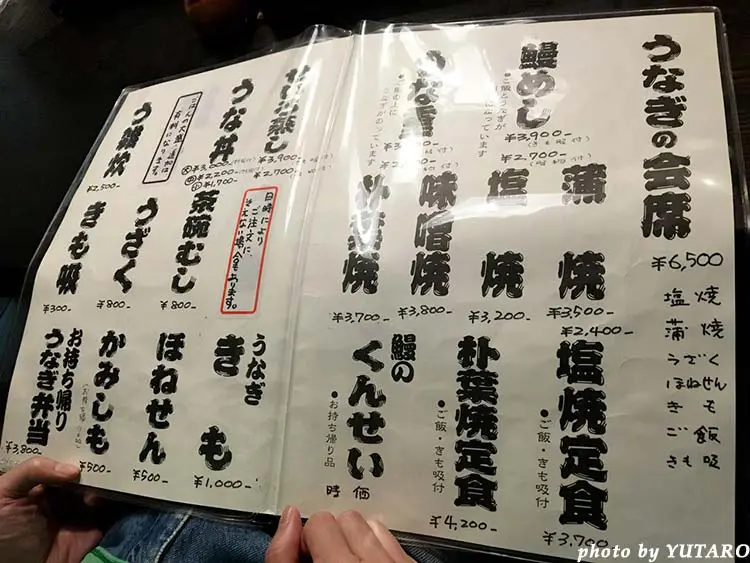 うなぎの会席
¥6,500
塩焼
蒲焼
うざく
ほねせん
きも
ご飯
きも吸
鰻めし
・ご飯とうなぎが
¥3,900-
(きも吸付)
¥2,700-
うな重
・ご飯の上に
うなぎがのっています
蒲焼
¥3,500-
¥2,400-
塩焼
¥3,200-
味噌焼
¥3,800-
朴葉焼
¥3,700-
塩焼定食
・ご飯・きも吸付
¥3,700
朴葉焼定食
・ご飯・きも吸付
¥4,200-
鰻の
くんせい
・お持ち帰り品
時価
せいろ蒸し
¥3,900-
¥2,700-
うな丼
¥3,000-
¥2,200-
¥1,700-
有料になります。
う雑炊
¥2,500-
日時により
ご注文に、
そえない場合もあります。
茶碗むし
¥800-
うざく
¥800-
きも吸
¥300-
うなぎ
きも
¥1,000-
ほねせん
¥500-
かみしも
¥500-
お持ち帰り
うなぎ弁当
¥3,800-
photo by YUTARO